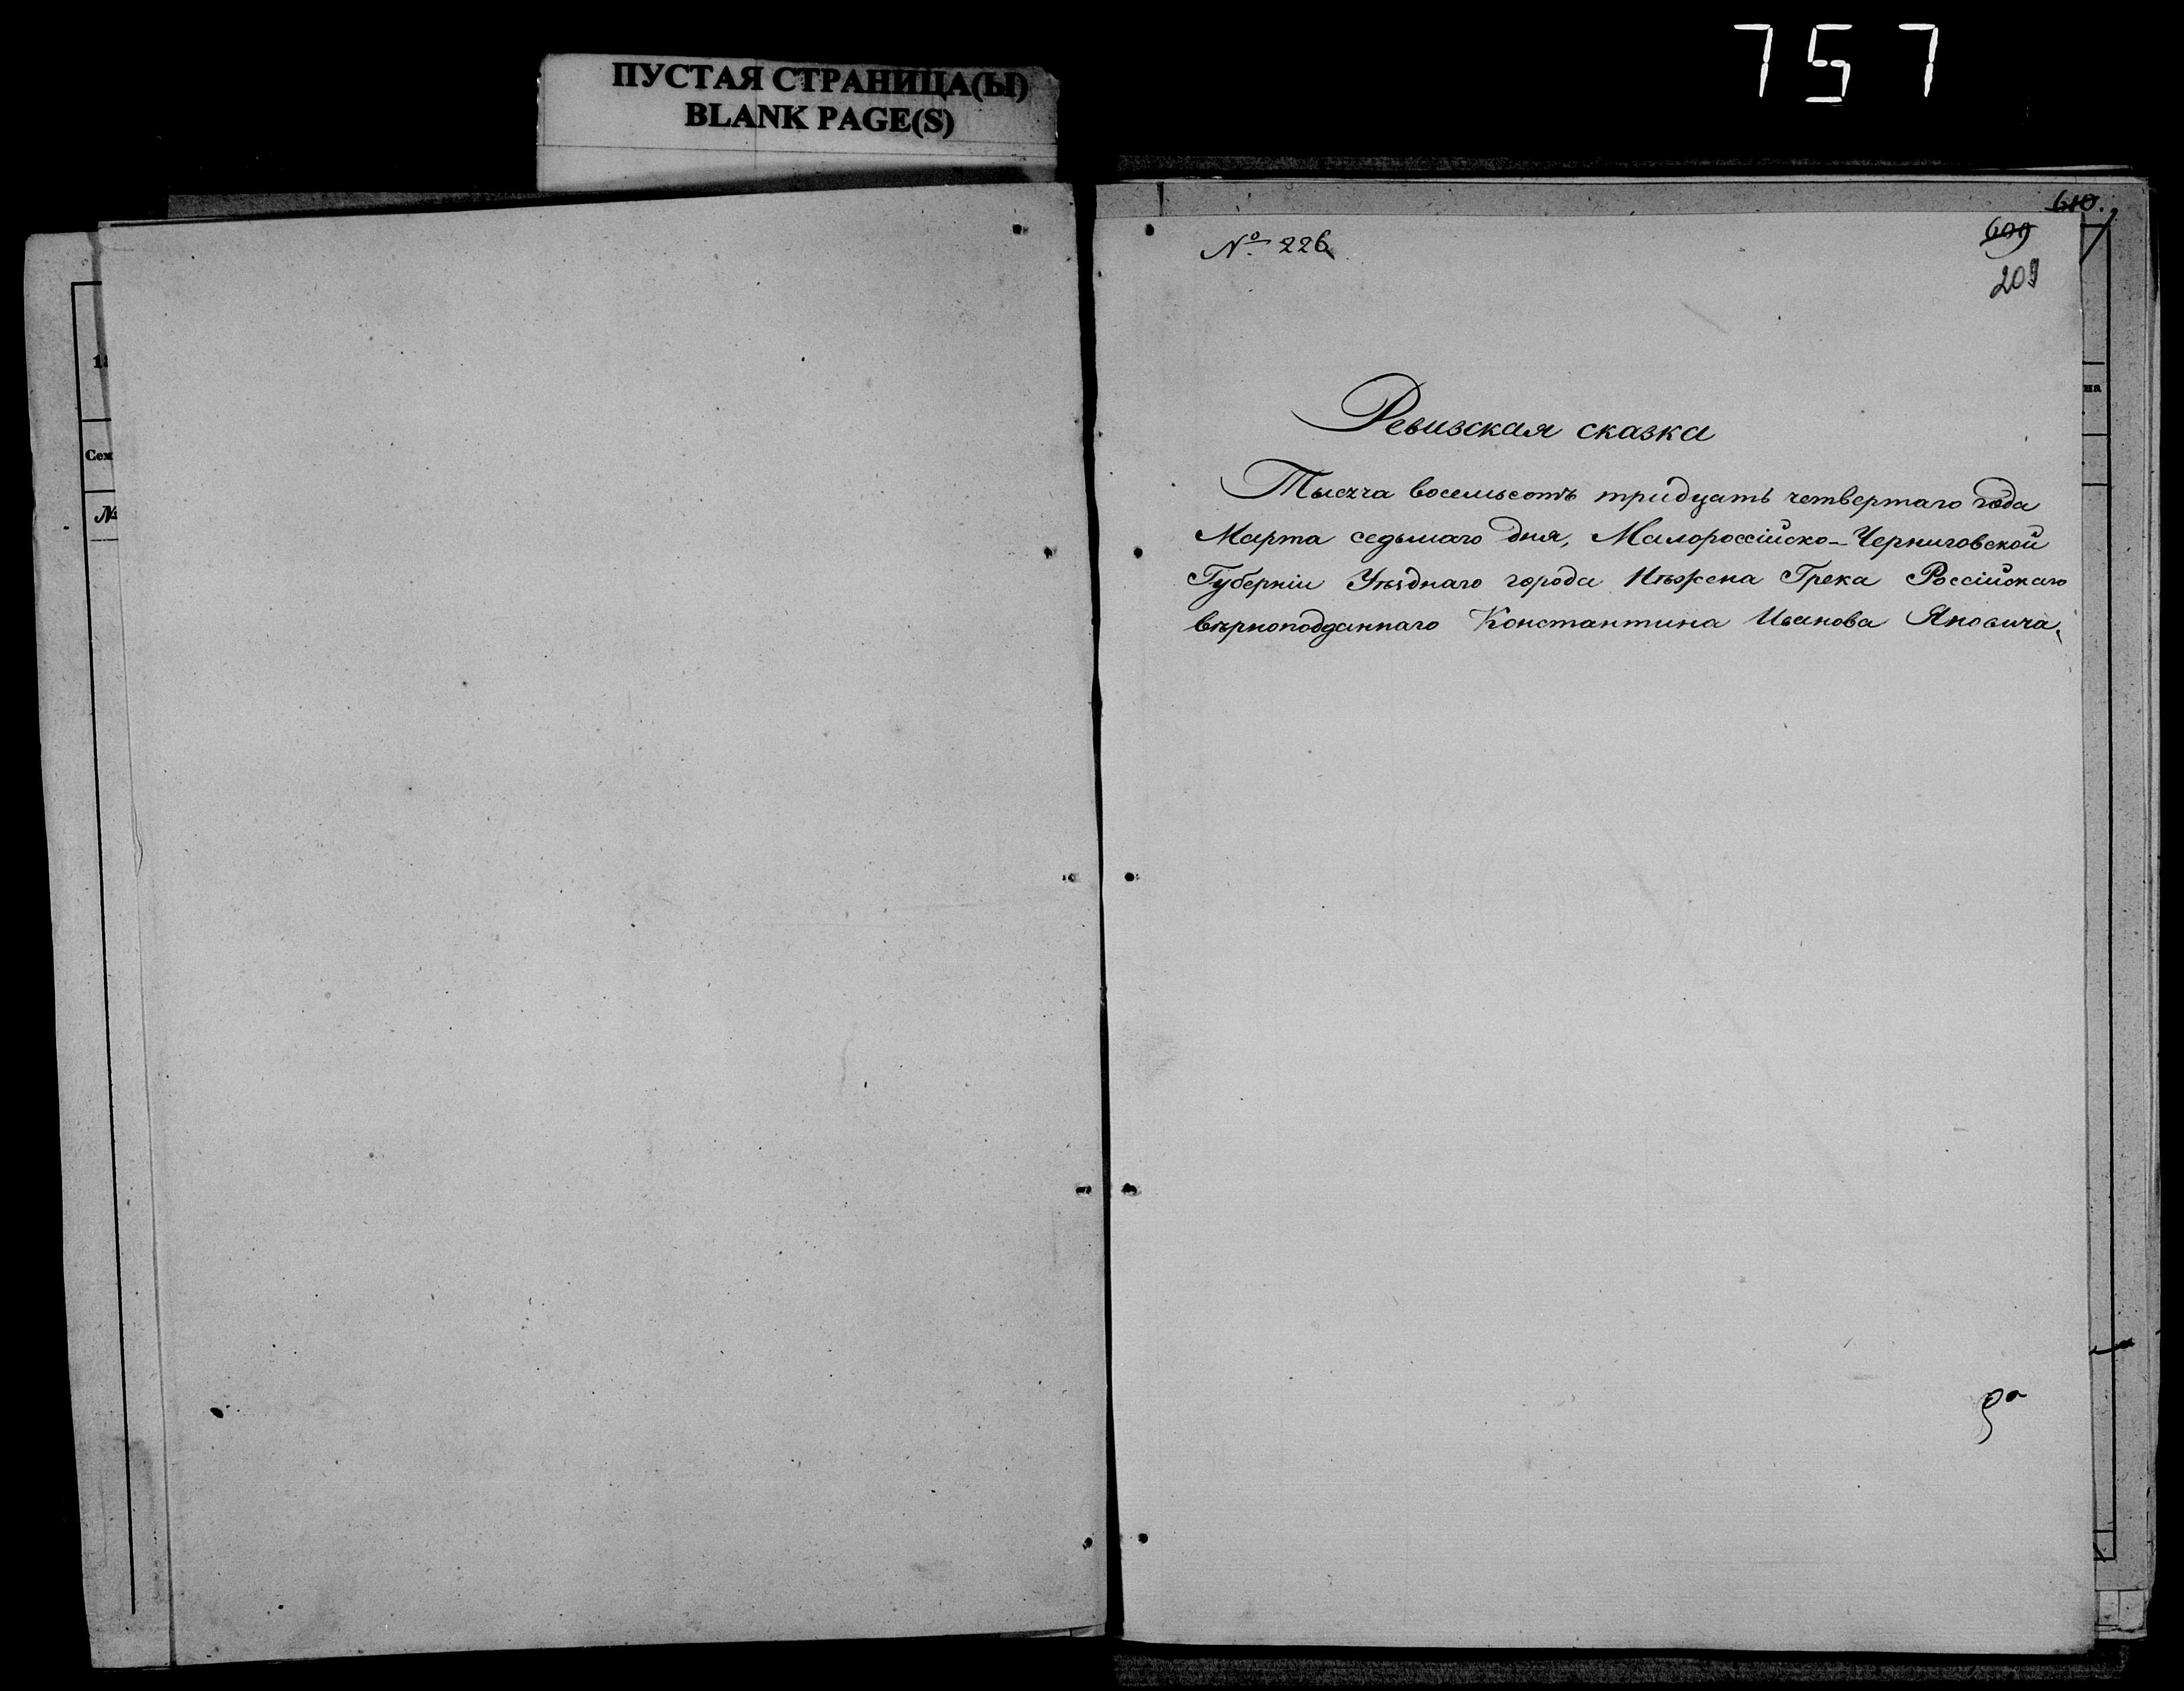 757
ПУСТАЯ СТРАНИЦА(Ы)
BLANK PAGE(S)
610.
609
209
№ 226
Ревизская сказка
Тысяча восемьсотъ тридцать четвертаго года
Марта седьмаго дня, Малороссійско-Черниговской
Губерніи Уѣзднаго города Нѣжена Грека Россійскаго
вѣрноподданнаго Константина Иванова Яновича,
на
Сем
№